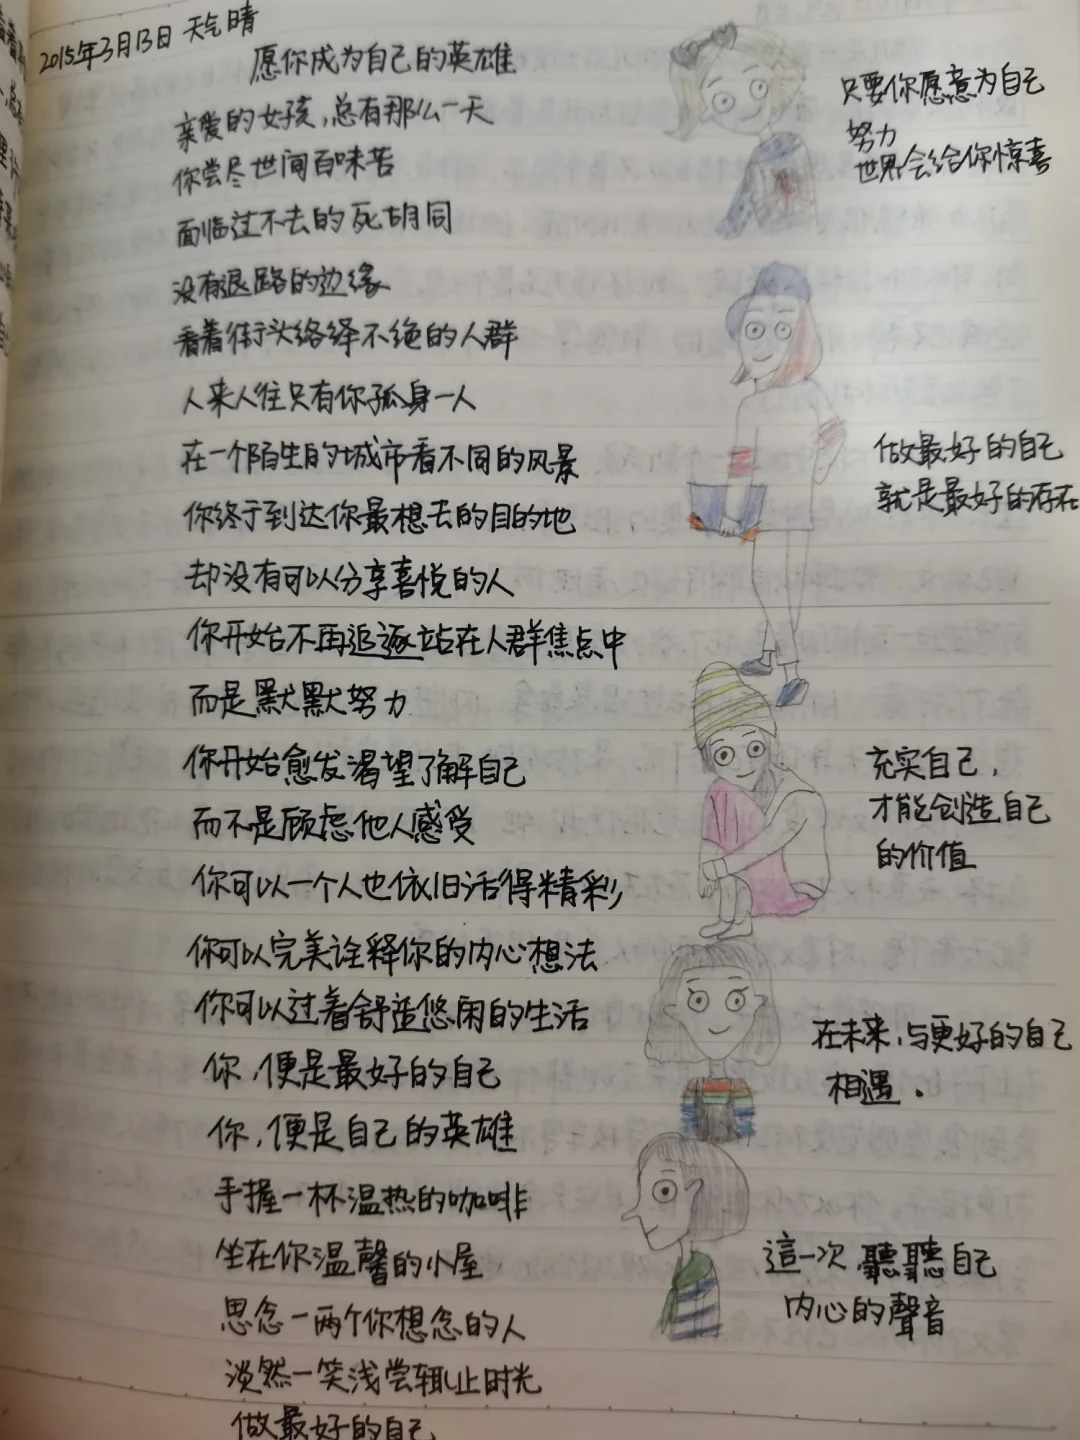 2015年3月13日 天气晴
愿你成为自己的英雄
亲爱的女孩,总有那么一天
你尝尽世间百味苦
面临过不去的死胡同
没有退路的边缘
看着街头络绎不绝的人群
人来人往只有你孤身一人
在一个陌生的城市看不同的风景
你终于到达你最想去的目的地
却没有可以分享喜悦的人
你开始不再追逐站在人群焦点中
而是默默努力
你开始愈发渴望了解自己
而不是顾虑他人感受
你可以一个人也依旧活得精彩
你可以完美诠释你的内心想法
你可以过着舒适悠闲的生活
你,便是最好的自己
你,便是自己的英雄
手握一杯温热的咖啡
坐在你温馨的小屋
思念一两个你想念的人
淡然一笑浅尝辄止时光
做最好的自己
只要你愿意为自己
努力
世界会给你惊喜
做最好的自己
就是最好的存在
充实自己,
才能创造自己
的价值
在未来,与更好的自己
相遇.
這一次,聽聽自己
内心的聲音